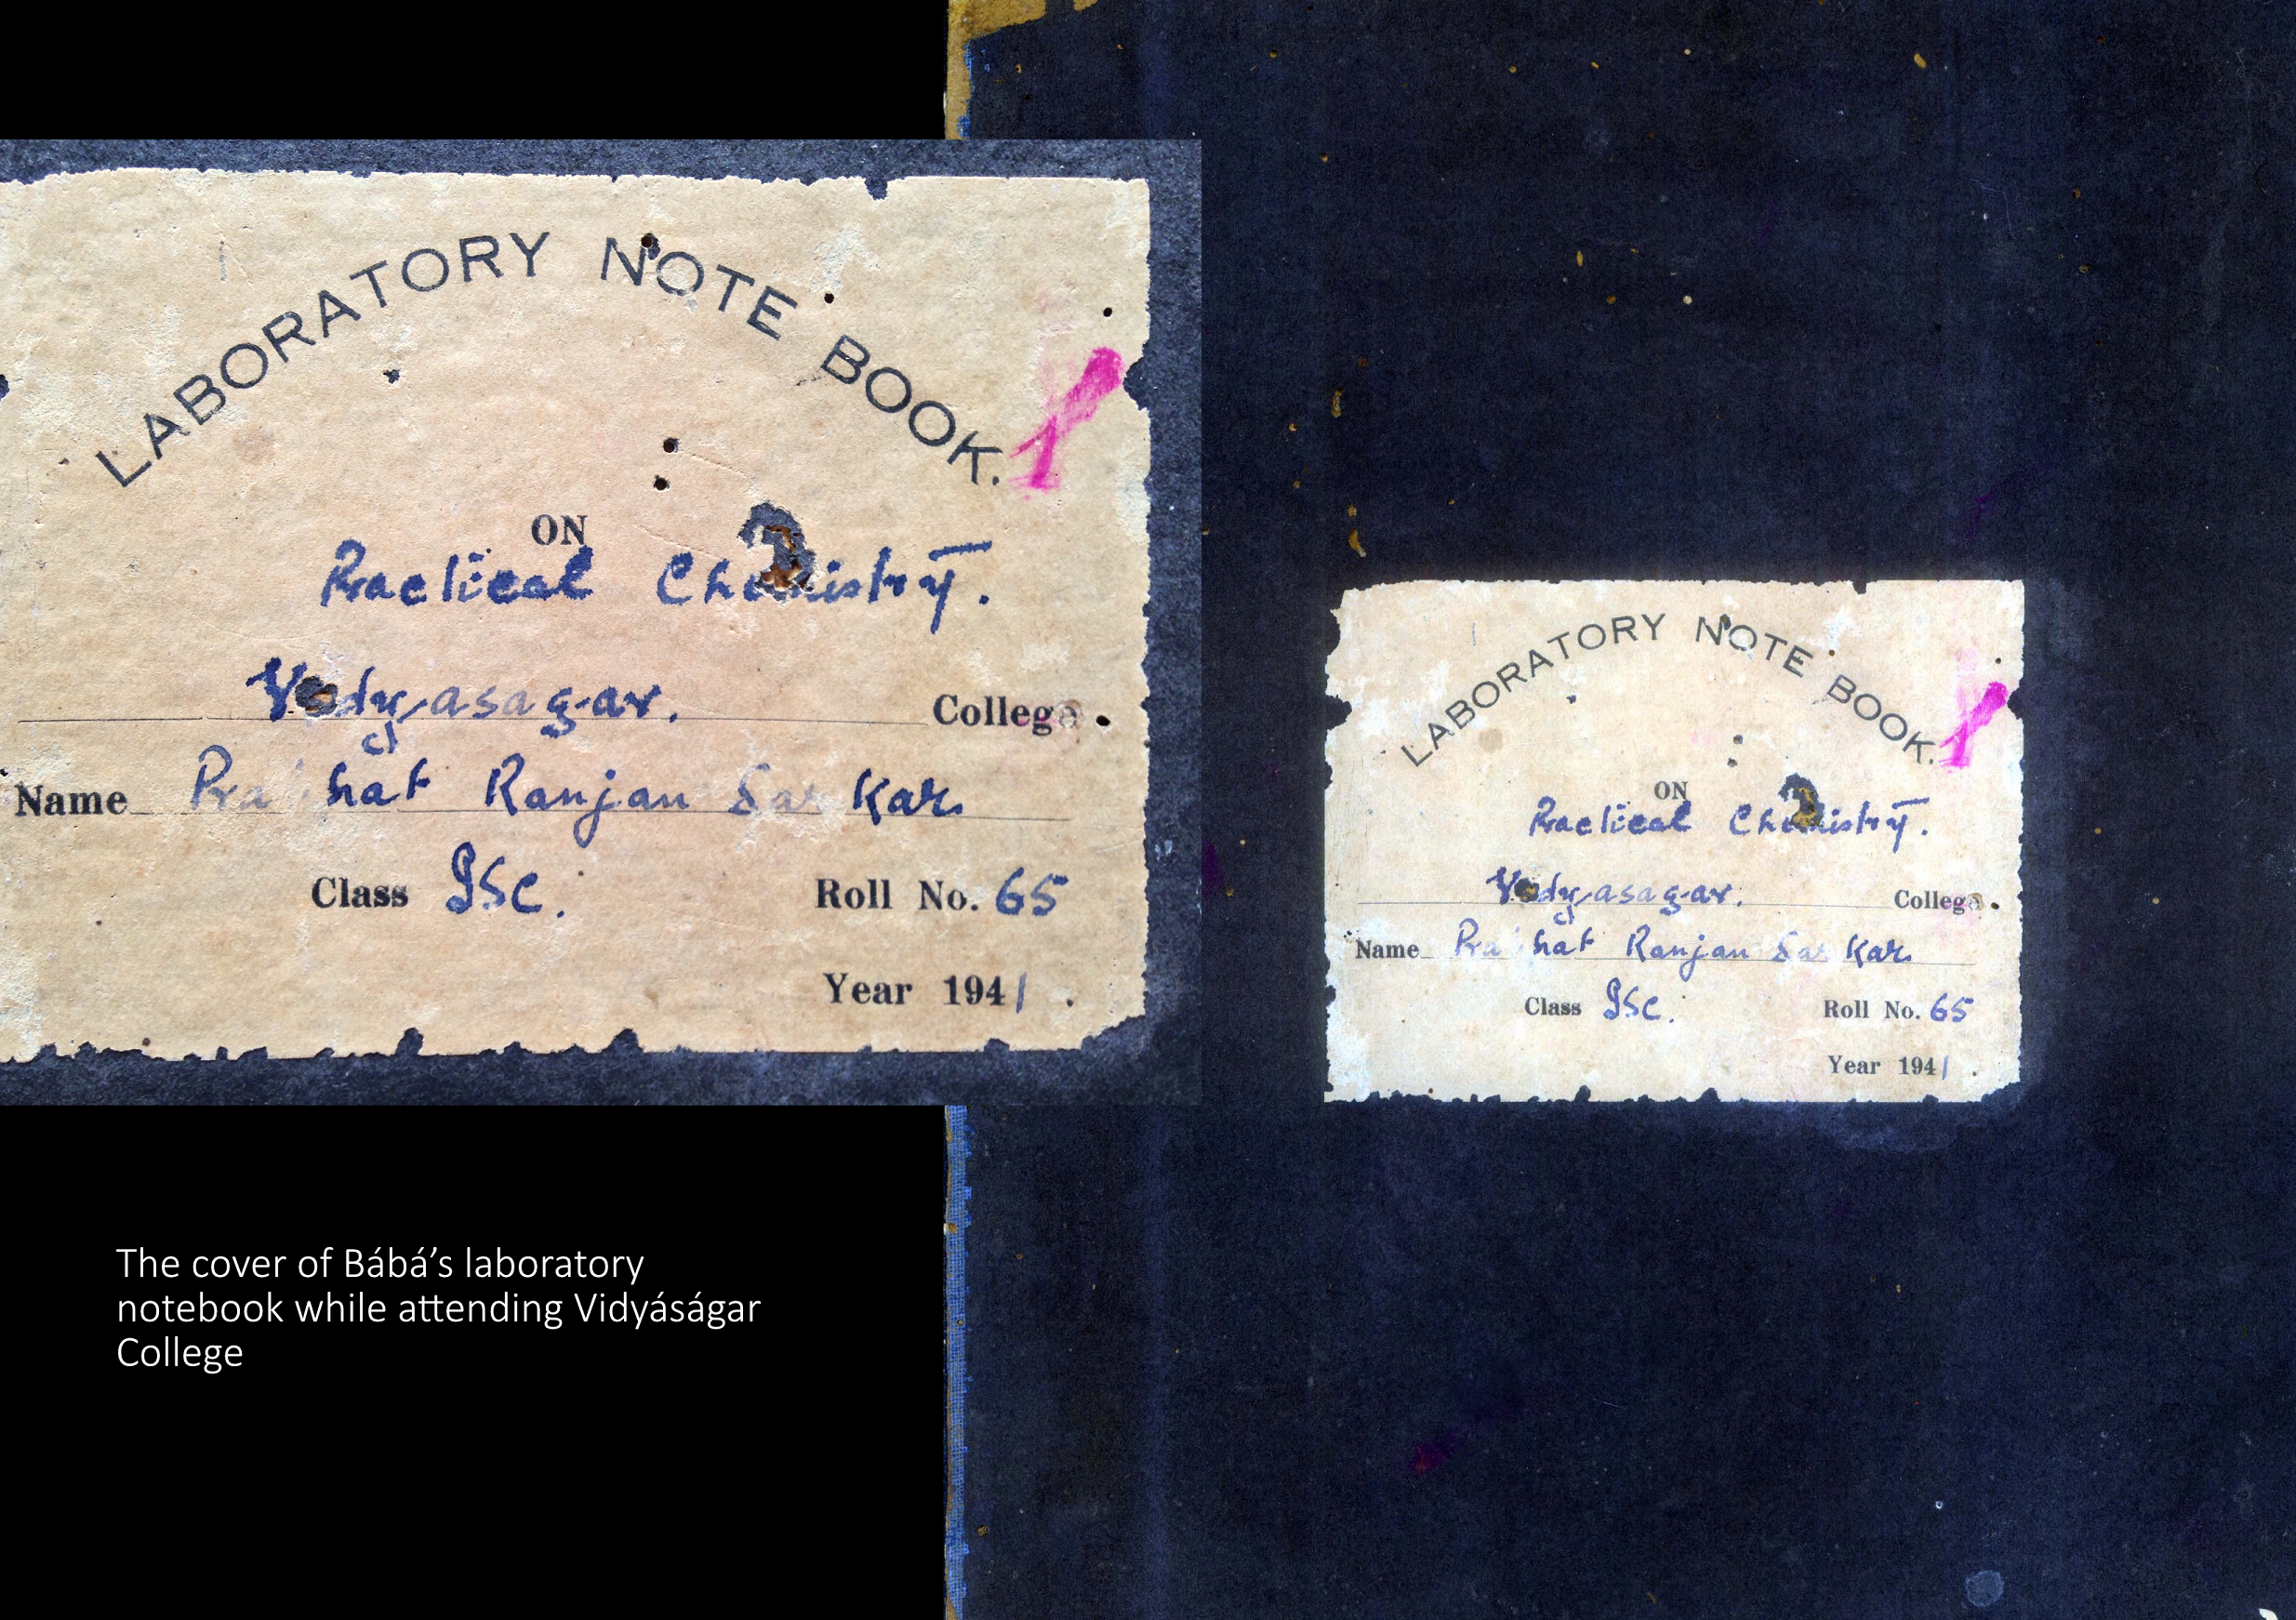 LABORATORY NOTE BOOK.
ON
Practical Chemistry.
Vidyasagar. College.
Name Prabhat Ranjan Sarkar
Class ISc. Roll No. 65
Year 1941.
LABORATORY NOTE BOOK.
ON
Practical Chemistry.
Vidyasagar. College.
Name Prabhat Ranjan Sarkar
Class ISc. Roll No. 65
Year 1941.
The cover of Bábá’s laboratory
notebook while attending Vidyáságar
College